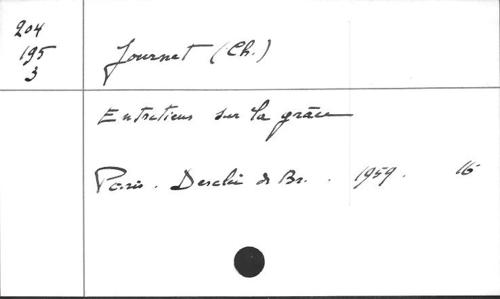 204
195
3
Journet (Ch.)
Entretiens sur la grâce
Paris. Desclée de Br. . 1959. 16